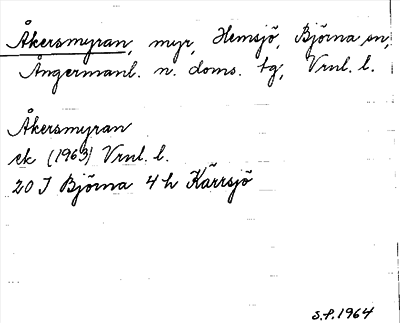 Åkersmyran, myr, Hemsjö, Björna sn,
Ångermanl. n. doms. tg, Vrnl. l.
Åkersmyran
ek (1963) Vrnl. l.
20 I Björna 4 h Kärrsjö
S.P. 1964